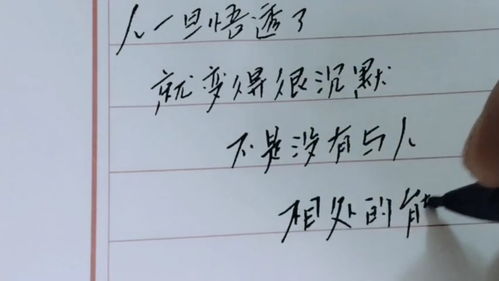 人一旦悟透了
就变得很沉默
不是没有与人
相处的